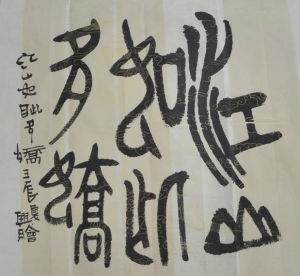 江山
如此
多嬌
江山如此多
嬌壬辰夏